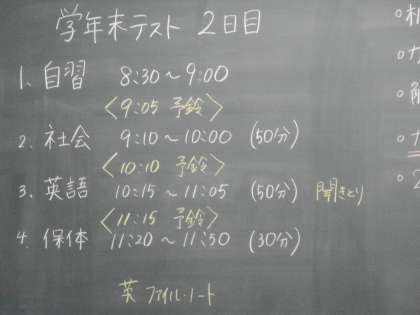 学年末テスト 2日目
1. 自習 8:30～9:00
<9:05 予鈴>
2. 社会 9:10～10:00 (50分)
<10:10 予鈴>
3. 英語 10:15～11:05 (50分) 聞きとり
<11:15 予鈴>
4. 保体 11:20～11:50 (30分)
英 ファイル・ノート